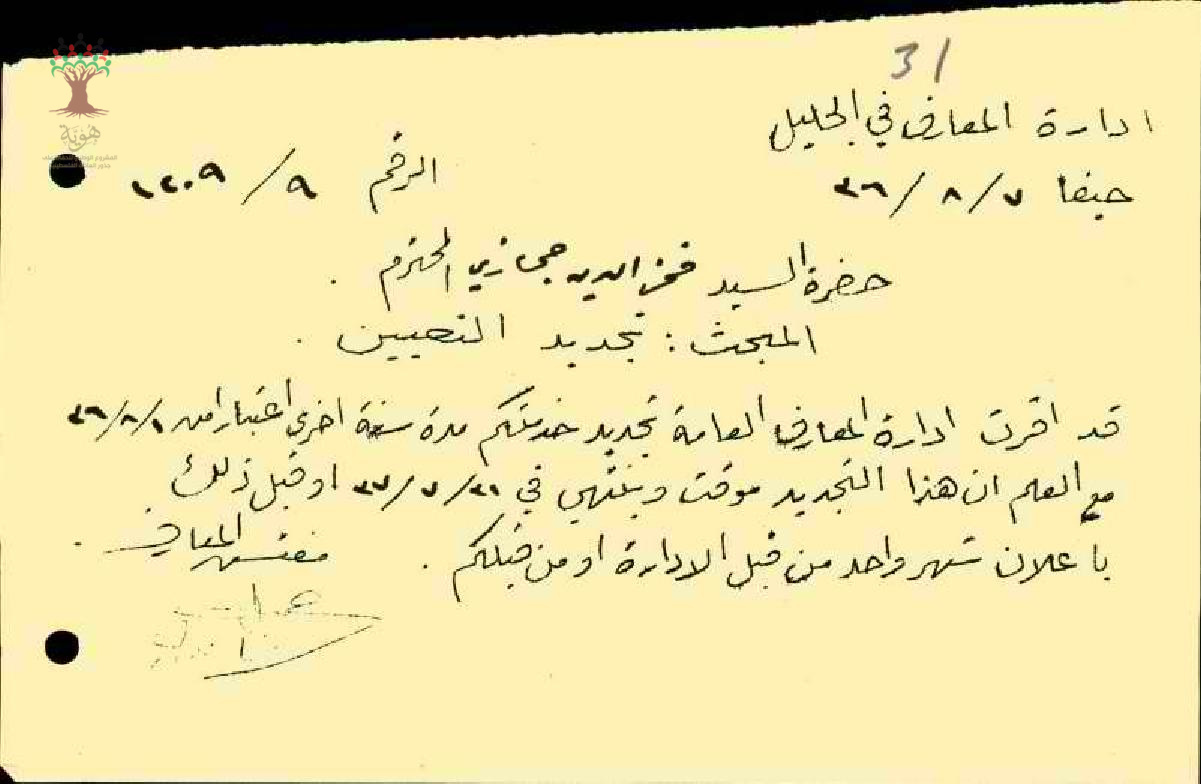 31
ادارة المعارف في الجليل
حيفا ٧/٨/٣٦ الرقم ٩/١٢٠٩
حضرة السيد فخر الدين حجازي المحترم .
المبحث : تجديد التعيين .
قد اقرت ادارة المعارف العامة تجديد خدمتكم مدة سنة اخرى اعتبارا من ١/٨/٣٦
مع العلم ان هذا التجديد موقت وينتهي في ٣١/٧/٣٧ او قبل ذلك
باعلان شهر واحد من قبل الادارة او من قبلكم . مفتش المعارف .
هوية